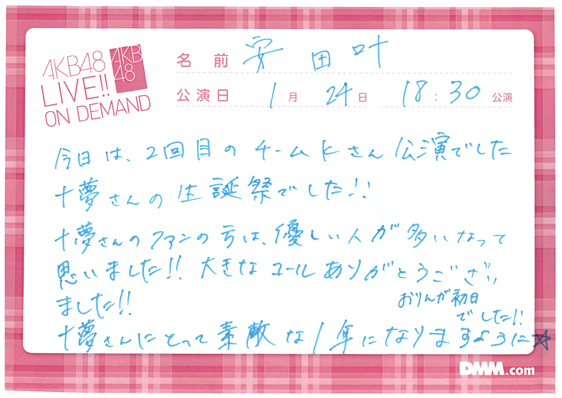 AKB48
LIVE!!
ON DEMAND
AKB
48
名前 安田叶
公演日 1月 24日 18:30 公演
今日は、2回目のチームKさん公演でした
十夢さんの生誕祭でした!!
十夢さんのファンの方は、優しい人が多いなって
思いました!! 大きなコールありがとうござい
ました!!
おりんが初日
でした!!
十夢さんにとって素敵な1年になりますように☆
DMM.com